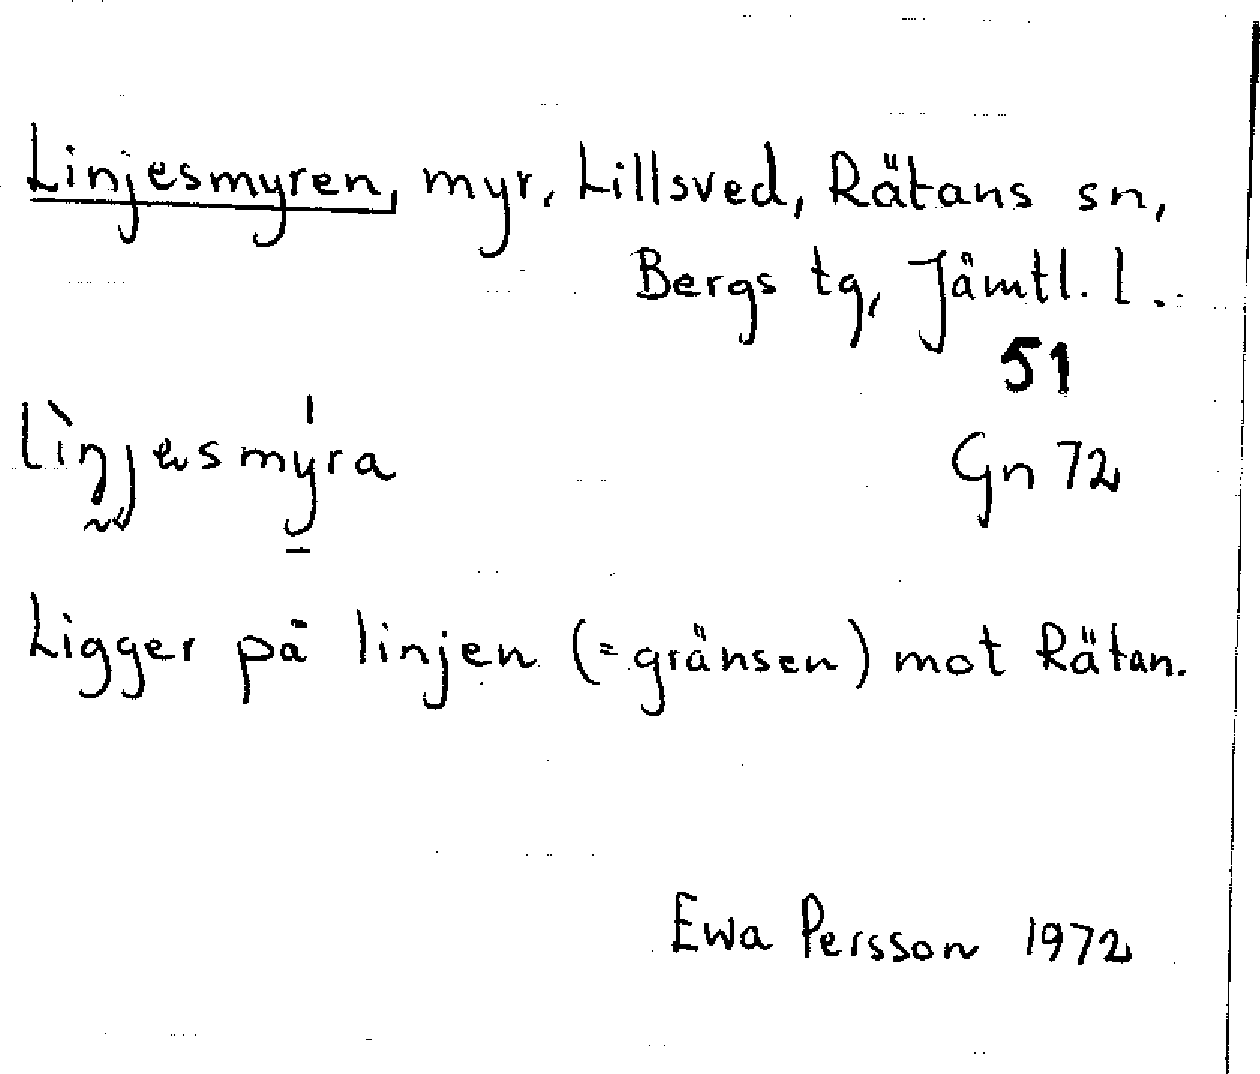 Linjesmyren, myr, Lillsved, Rätans sn,
Bergs tg, Jämtl. l.
51
Gn 72
Ligger på linjen (= gränsen) mot Rätan.
Ewa Persson 1972